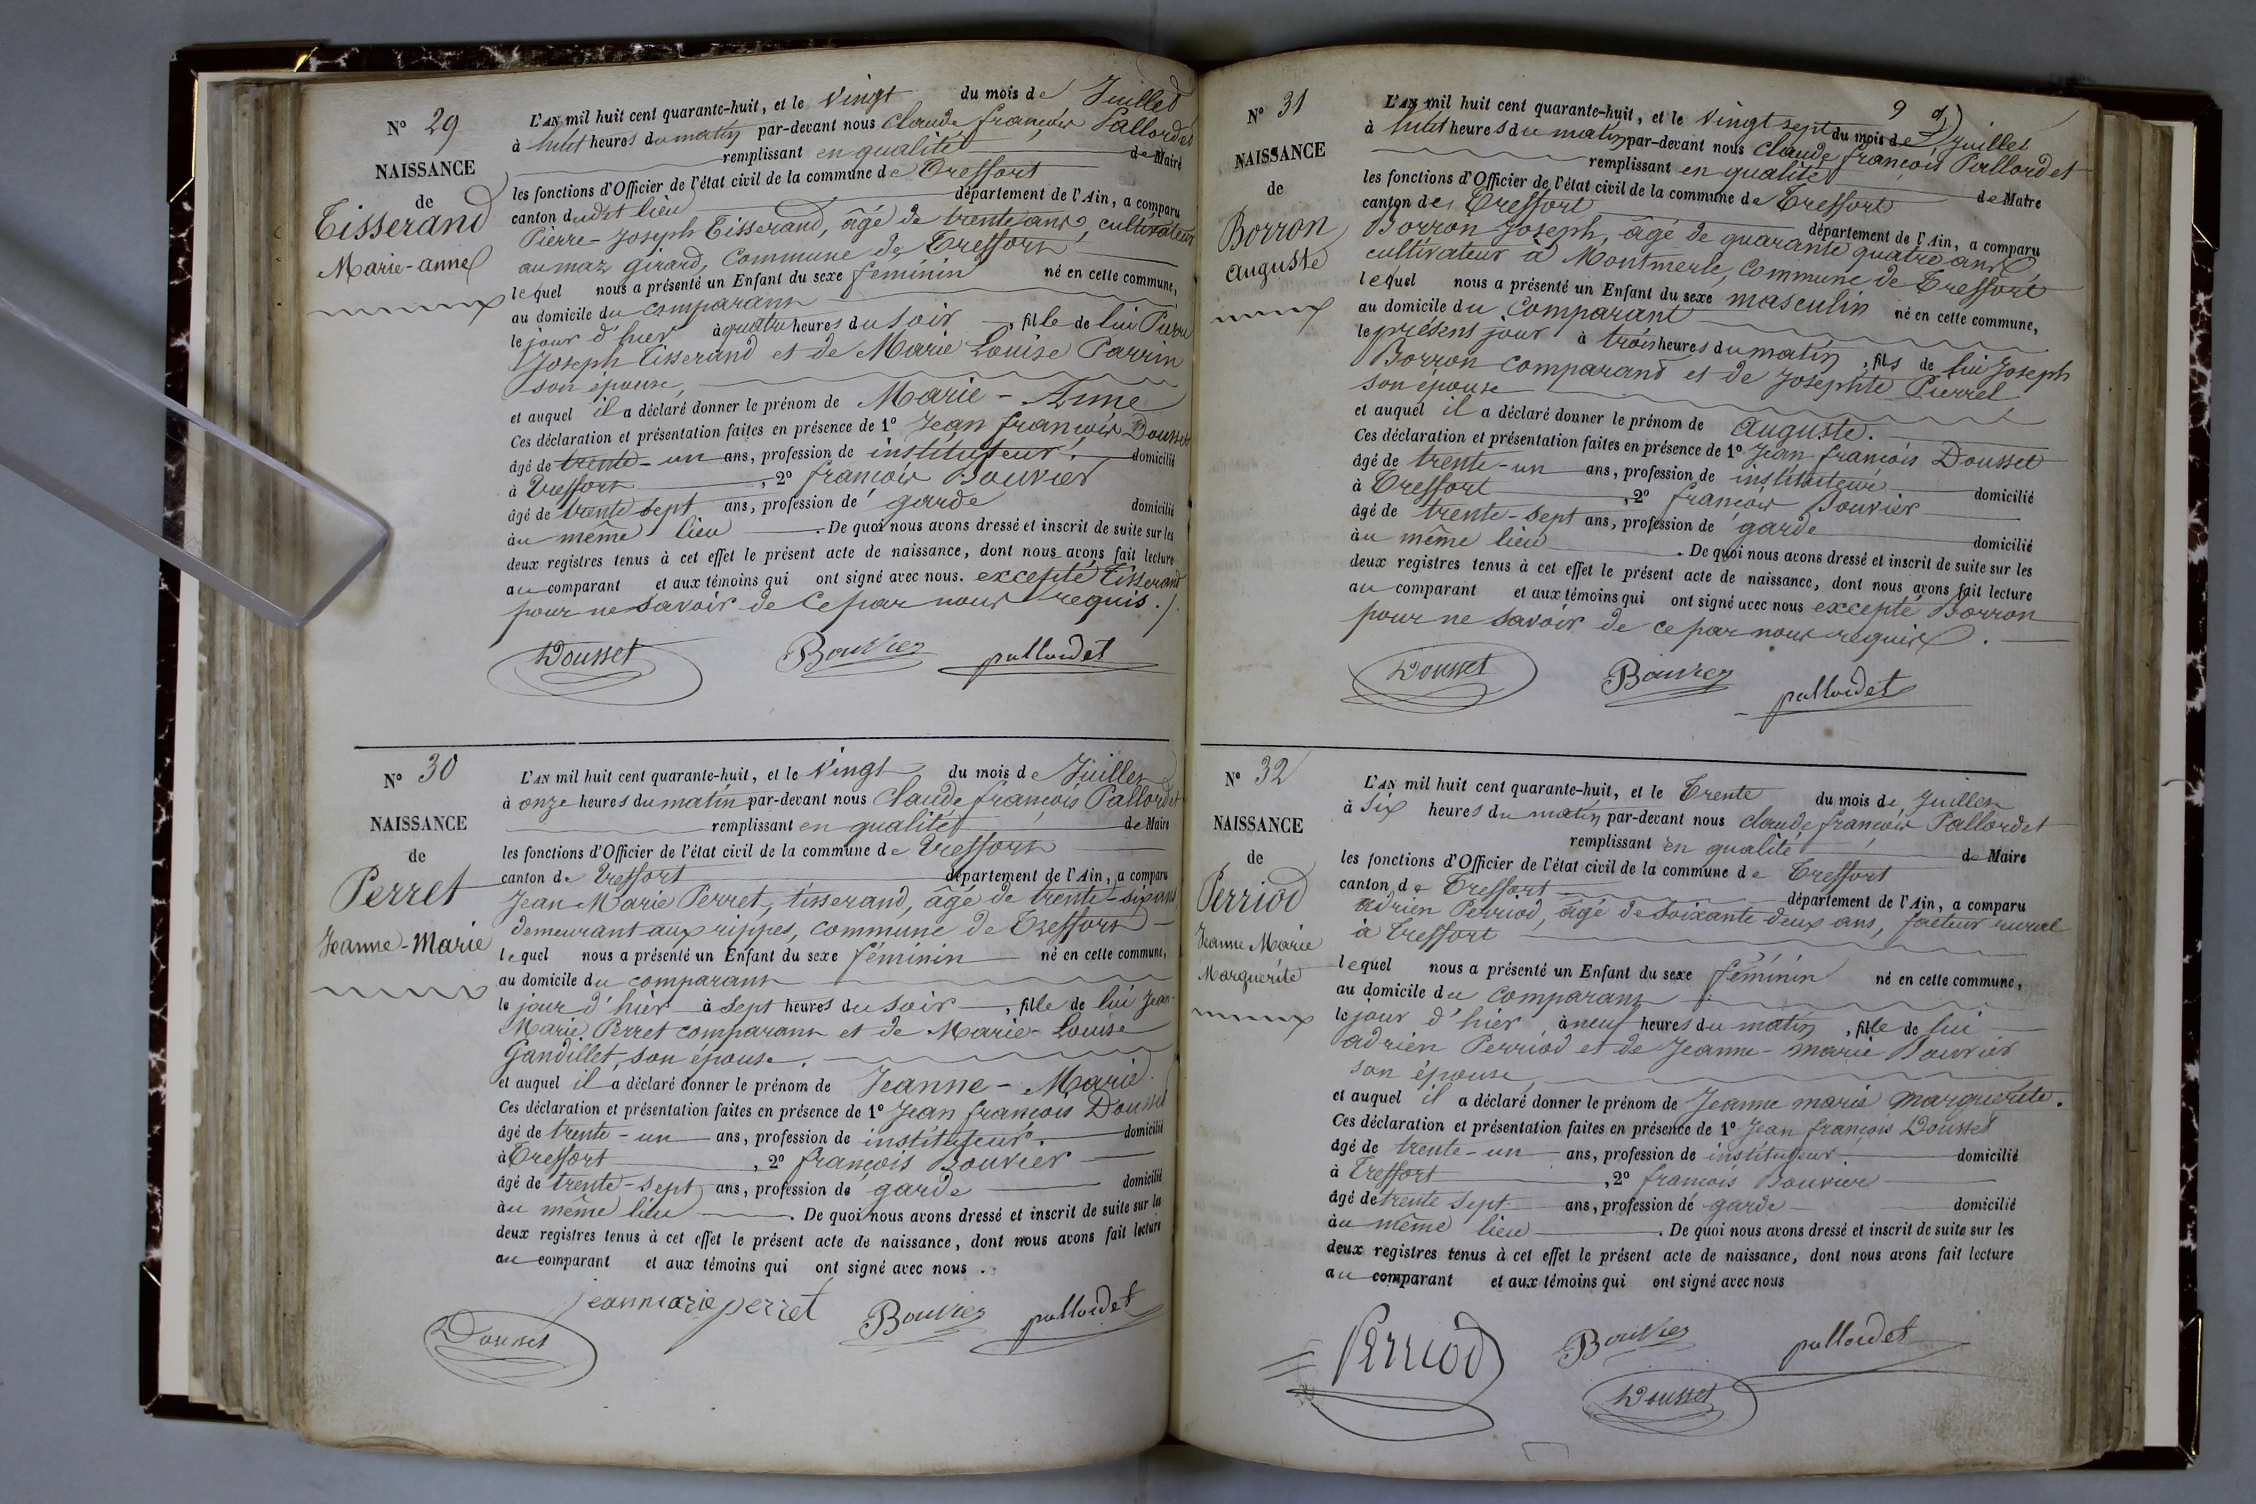 N° 29
NAISSANCE
de
Tisserand
Marie-anne
L'AN mil huit cent quarante-huit, et le vingt du mois de Juillet
à huit heures du matin par-devant nous Claude françois Pallordet
remplissant en qualité de Maire
les fonctions d'Officier de l'état civil de la commune de Treffort
canton dudit lieu département de l'Ain, a comparu
Pierre-Joseph Tisserand, âgé de trente ans, cultivateur
au maz girard, Commune de Treffort
lequel nous a présenté un Enfant du sexe féminin né en cette commune,
au domicile du comparant
le jour d'hier à quatre heures du soir, fille de lui Pierre
Joseph Tisserand et de Marie Louise Parrin
son épouse,
et auquel il a déclaré donner le prénom de Marie-Anne
Ces déclaration et présentation faites en présence de 1° Jean françois Dousset
âgé de trente-un ans, profession de instituteur. domicilié
à Treffort, 2° françois Bouvier
âgé de trente sept ans, profession de garde domicilié
au même lieu. De quoi nous avons dressé et inscrit de suite sur les
deux registres tenus à cet effet le présent acte de naissance, dont nous avons fait lecture
au comparant et aux témoins qui ont signé avec nous. excepté Tisserand
pour ne savoir de ce par nous requis./.
Dousset Bouvier pallordet
N° 30
NAISSANCE
de
Perret
Jeanne-Marie
L'AN mil huit cent quarante-huit, et le vingt du mois de Juillet
à onze heures du matin par-devant nous Claude françois Pallordet
remplissant en qualité de Maire
les fonctions d'Officier de l'état civil de la commune de Treffort
canton de Treffort département de l'Ain, a comparu
Jean Marie Perret, tisserand, âgé de trente-six ans
demeurant aux rippes, commune de Treffort
lequel nous a présenté un Enfant du sexe féminin né en cette commune,
au domicile du comparant
le jour d'hier à sept heures du soir, fille de lui Jean-
Marie Perret comparant et de Marie-Louise
Gandillet, son épouse.
et auquel il a déclaré donner le prénom de Jeanne-Marie.
Ces déclaration et présentation faites en présence de 1° Jean françois Dousset
âgé de trente-un ans, profession de instituteur. domicilié
à Treffort, 2° françois Bouvier
âgé de trente-sept ans, profession de garde domicilié
au même lieu. De quoi nous avons dressé et inscrit de suite sur les
deux registres tenus à cet effet le présent acte de naissance, dont nous avons fait lecture
au comparant et aux témoins qui ont signé avec nous.
jeanmarie perret Bouvier pallordet
Dousset
9
N° 31
NAISSANCE
de
Borron
auguste
L'AN mil huit cent quarante-huit, et le vingt sept du mois de Juillet
à huit heures du matin par-devant nous Claude françois Pallordet
remplissant en qualité de Maire
les fonctions d'Officier de l'état civil de la commune de Treffort
canton de Treffort département de l'Ain, a comparu
Borron Joseph, âgé de quarante quatre ans,
cultivateur à Montmerle, commune de Treffort
lequel nous a présenté un Enfant du sexe masculin né en cette commune,
au domicile du Comparant
le présent jour à trois heures du matin, fils de lui Joseph
Borron comparant et de Josephte Pierrel
son épouse
et auquel il a déclaré donner le prénom de auguste.
Ces déclaration et présentation faites en présence de 1° Jean françois Dousset
âgé de trente-un ans, profession de instituteur domicilié
à Treffort, 2° françois Bouvier
âgé de trente-sept ans, profession de garde domicilié
au même lieu. De quoi nous avons dressé et inscrit de suite sur les
deux registres tenus à cet effet le présent acte de naissance, dont nous avons fait lecture
au comparant et aux témoins qui ont signé avec nous excepté Borron
pour ne savoir de ce par nous requis.
Dousset Bouvier pallordet
N° 32
NAISSANCE
de
Perriod
Jeanne Marie
Marguerite
L'AN mil huit cent quarante-huit, et le Trente du mois de Juillet
à six heures du matin par-devant nous Claude françois Pallordet
remplissant en qualité de Maire
les fonctions d'Officier de l'état civil de la commune de Treffort
canton de Treffort département de l'Ain, a comparu
adrien Perriod, âgé de soixante deux ans, facteur rural
à Treffort
lequel nous a présenté un Enfant du sexe féminin né en cette commune,
au domicile du comparant
le jour d'hier, à neuf heures du matin, fille de lui
adrien Perriod et de Jeanne-marie Bouvier
son épouse,
et auquel il a déclaré donner le prénom de Jeanne marie marguerite.
Ces déclaration et présentation faites en présence de 1° Jean françois Dousset
âgé de trente-un ans, profession de instituteur. domicilié
à Treffort, 2° françois Bouvier
âgé de trente sept ans, profession de garde domicilié
au même lieu. De quoi nous avons dressé et inscrit de suite sur les
deux registres tenus à cet effet le présent acte de naissance, dont nous avons fait lecture
au comparant et aux témoins qui ont signé avec nous
Perriod Bouvier pallordet
Dousset